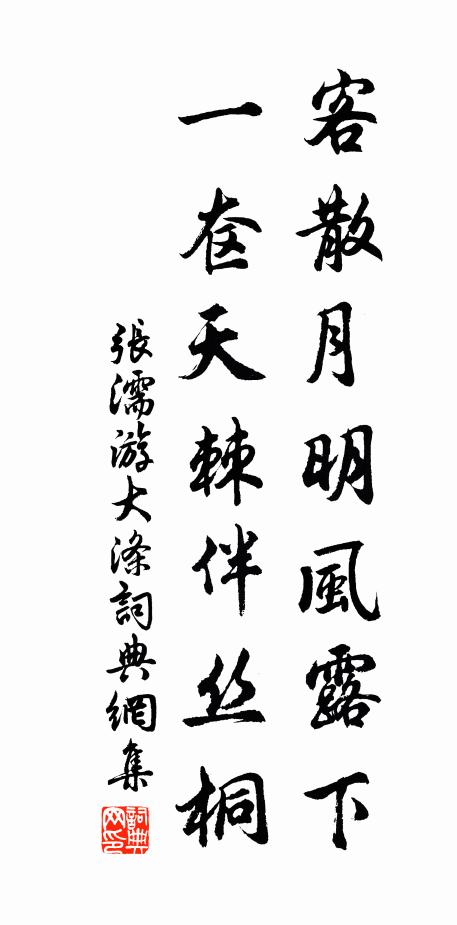 客散月明風露下
一奁天棘伴丝桐
張濡游大涤詞典網集
詞典
网印